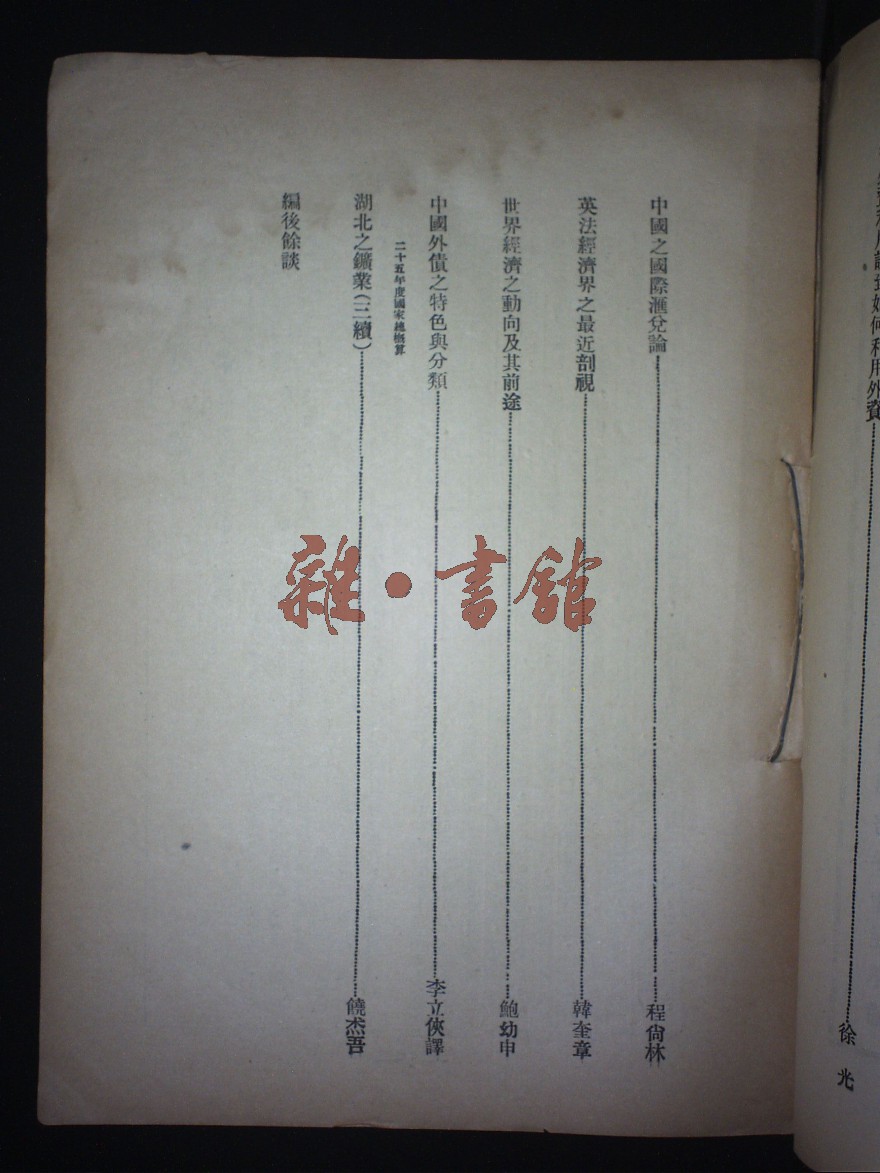 如何利用外資 徐光
中國之國際滙兌論 程尙林
英法經濟界之最近剖視 韓奎章
世界經濟之動向及其前途 鮑幼申
中國外債之特色與分類 李立俠譯
二十五年度國家總概算
湖北之鑛業(三續) 饒杰吾
編後餘談
雜·書館